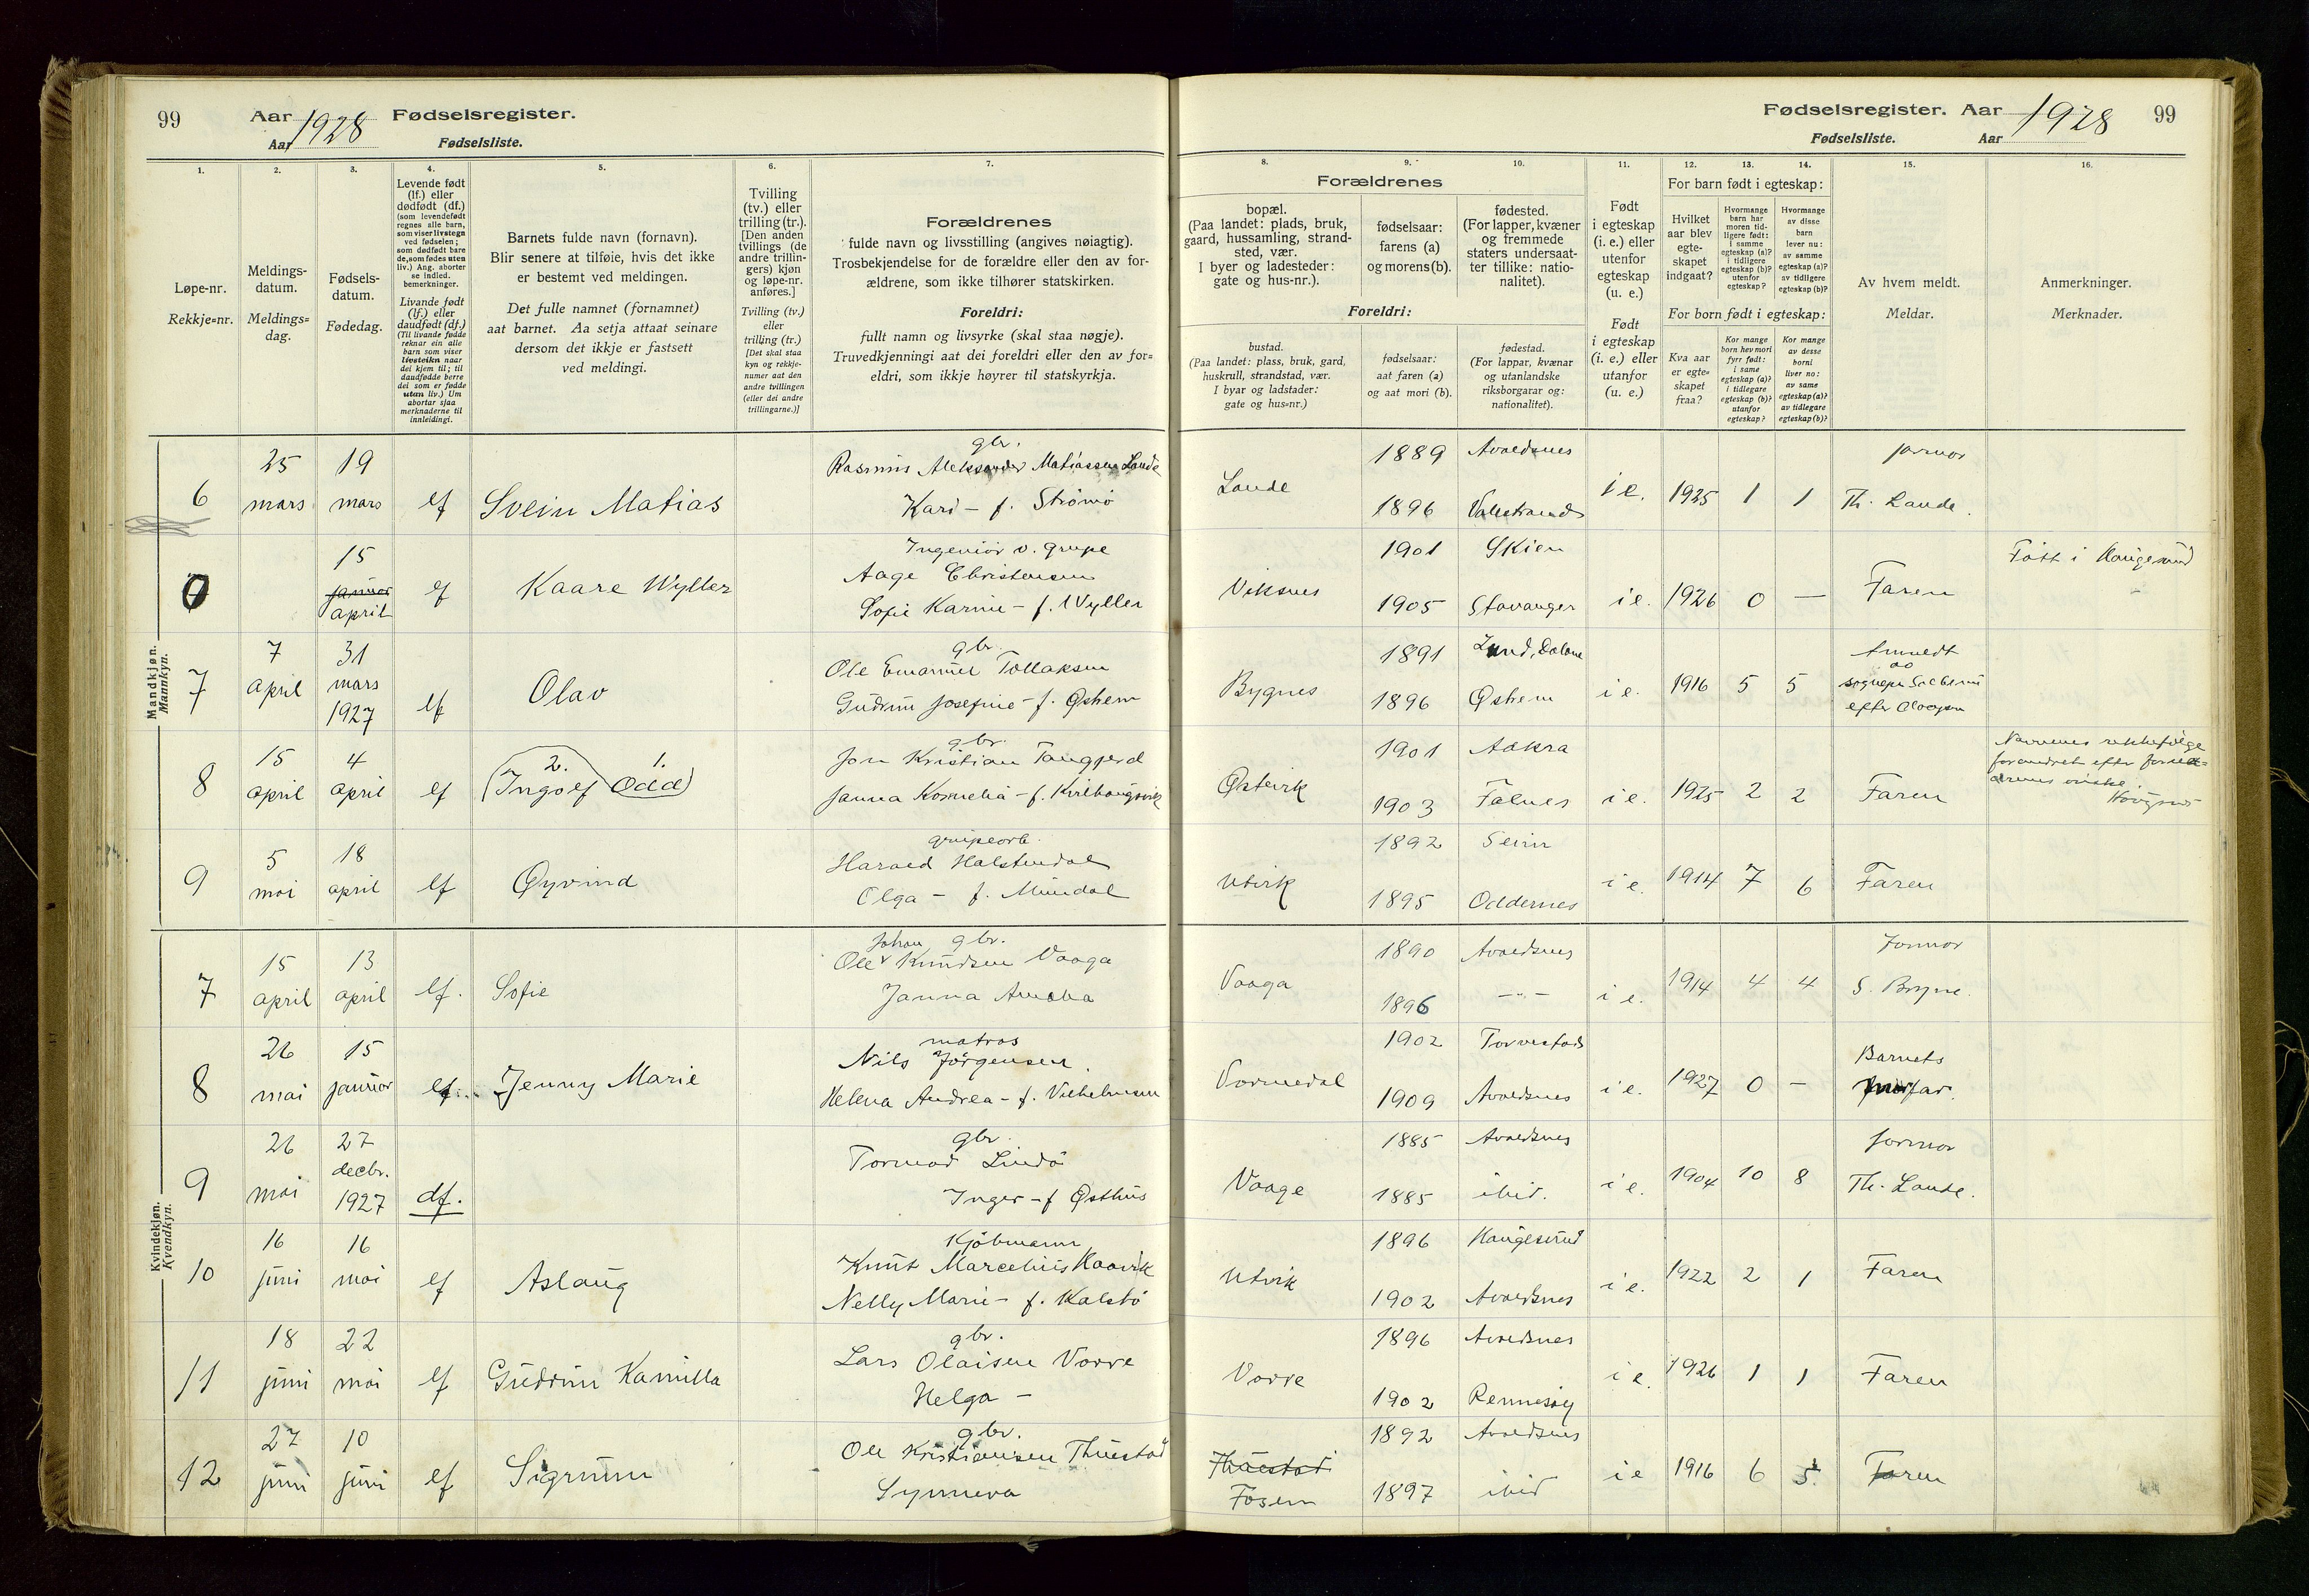 99
Aar 1928 Fødselsregister.
Aar Fødselsliste.
1.
2.
3.
4.
5.
6.
7.
Løpe-nr.
Rekkje=nr.
Meldings-
datum.
Meldings=
dag.
Fødsels-
datum.
Fødedag.
Levende født
(lf.) eller
dødfødt (df.)
(som levendefødt
regnes alle barn,
som viser livstegn
ved fødselen;
som dødfødt bare
de, som fødes uten
liv.) Ang. aborter
se indled.
bemerkninger.
Livande født
(lf.) eller
daudfødt (df.)
(Til livande fødde
reknar ein alle
barn som viser
livsteikn naar
dei kjem til; til
daudfødde berre
dei som er fødde
utan liv.) Um
abortar sjaa
merknaderne til
innleidingi.
Barnets fulde navn (fornavn).
Blir senere at tilføie, hvis det ikke
er bestemt ved meldingen.
Det fulle namnet (fornamnet)
aat barnet. Aa setja attaat seinare
dersom det ikkje er fastsett
ved meldingi.
Tvilling
(tv.) eller
trilling (tr.).
[Den anden
tvillings (de
andre trillin-
gers) kjøn
og løpe-nr.
anføres.]
Tvilling (tv.)
eller
trilling (tr.)
[Det skal staa
kyn og rekkje-
numer aat den
andre tvillingen
(eller dei andre
trillingarne.)]
Forældrenes
fulde navn og livsstilling (angives nøiagtig).
Trosbekjendelse for de forældre eller den av for-
ældrene, som ikke tilhører statskirken.
Foreldri:
fullt namn og livsyrke (skal staa nøgje).
Truvedkjenningi aat dei foreldri eller den av for=
eldri, som ikkje høyrer til statskyrkja.
Mandkjøn.
Mannkyn.
6
25
mars
19
mars
lf
Svein Matias
gbr.
Rasmus Aleksander Matiassen Lande
Kari - f. Strømø
0
15
januar
april
lf
Kaare Wyller
Ingeniør v. grupe
Aage Christensen
Sofie Karine - f. Wyller
7
7
april
31
mars
1927
lf
Olav
gbr.
Ole Emanuel Tollaksen
Gudrun Josefine - f. Øshem
8
15
april
4
april
lf
2. 1.
Ingolf Odd
gbr.
Jon Kristian Tangjerd
Janna Kornelia - f.
9
5
mai
18
april
lf
Øyvind
grupearb.
Harald Halstendal
Olga - f. Mundal
Kvindekjøn.
Kvendkyn.
7
15
april
13
april
lf.
Sofie
Johan gbr.
Ole Knudsen Vaaga
Janna Amalia
8
26
mai
15
januar
lf.
Jenny Marie
matros
Nils Jørgensen
Helena Andrea - f. Vilhelmsen
9
26
mai
27
decbr.
1927
df.
gbr.
Tormod Lindø
Inger - f Østhus
10
16
juni
16
mai
lf
Aslaug
Kjøbmann
Knut Marcelius Haavik
Nelly Marie - f. Kalstø
11
18
juni
22
mai
lf
Gudrun Kamilla
gbr.
Lars Olaisen Vorre
Helga -
12
27
juni
10
juni
lf
Sigrunn
gbr.
Ole Kristiansen Thuestad
Synneva
Fødselsregister. Aar 1928
99
Fødselsliste. Aar
8.
9.
10.
11.
12.
13.
14.
15.
16.
Forældrenes
bopæl.
(Paa landet: plads, bruk,
gaard, hussamling, strand-
sted, vær.
I byer og ladesteder:
gate og hus-nr.).
fødselsaar:
farens (a)
og morens (b).
fødested.
(For lapper, kvæner
og fremmede
staters undersaat-
ter tillike: natio-
nalitet).
Foreldri:
bustad.
(Paa landet: plass, bruk, gard,
huskrull, strandstad, vær.
I byar og ladstader:
gate og hus=nr.)
fødselsaar:
aat faren (a)
og aat mori (b).
fødestad.
(For lappar, kvænar
og utanlandske
riksborgarar og:
nationalitet).
Født
i egteskap
(i. e.) eller
utenfor
egteskap
(u. e.)
Født
i egteskap
(i. e.) eller
utanfor
(u. e.)
For barn født i egteskap:
Hvilket
aar blev
egte-
skapet
indgaat?
Hvormange
barn har
moren tid-
ligere født:
i samme
egteskap (a)?
i tidligere
egteskap (b)?
utenfor
egteskap?
Hvormange
av disse
barn
lever nu:
av samme
egteskap (a)?
av tidligere
egteskap (b)?
For born født i egteskap:
Kva aar
er egte=
skapet
fraa?
Kor mange
born hev mori
fyrr født:
i same
egteskap (a)?
i tidlegare
egteskap (b)?
utanfor
egteskap?
Kor mange
av desse
borni
liver no:
av same
egteskap (a)?
av tidlegare
egteskap (b)?
Av hvem meldt.
Meldar.
Anmerkninger.
Merknader.
Lande
1889
1896
Avaldsnes
i e.
1925
1
1
jormor
Th. Lande.
Viksnes
1901
1905
Skien
Stavanger
i e.
1926
0
—
Faren
Født i Haugesund
Bygnes
1891
1896
Lund, Dalane
Øshem
i e.
1916
5
5
Anmeldt
Østvik
1901
1903
Aakra
Falnes
i e.
1925
2
2
Faren
Navnenes rekkefølge
forandret efter foræl-
drenes ønske.
Utvik
1892
1895
Seim
Oddernes
i e.
1914
7
6
Faren
Vaaga
1890
1896
Avaldsnes
- " -
i e.
1914
4
4
Jormor
S. Bryne.
Vormedal
1902
1909
Torvestad
Avaldsnes
i e.
1927
0
—
Barnets
morfar.
Vaage
1885
1885
Avaldsnes
ibid.
i e.
1904
10
8
jormor
Th. Lande.
Utvik
1896
1902
Haugesund
Avaldsnes
i e.
1922
2
1
Faren
Vorre
1896
1902
Avaldsnes
Rennesøy
i e.
1926
1
1
Faren
Thuestad
Fosen
1892
1897
Avaldsnes
ibid
i e
1916
6
5
Faren